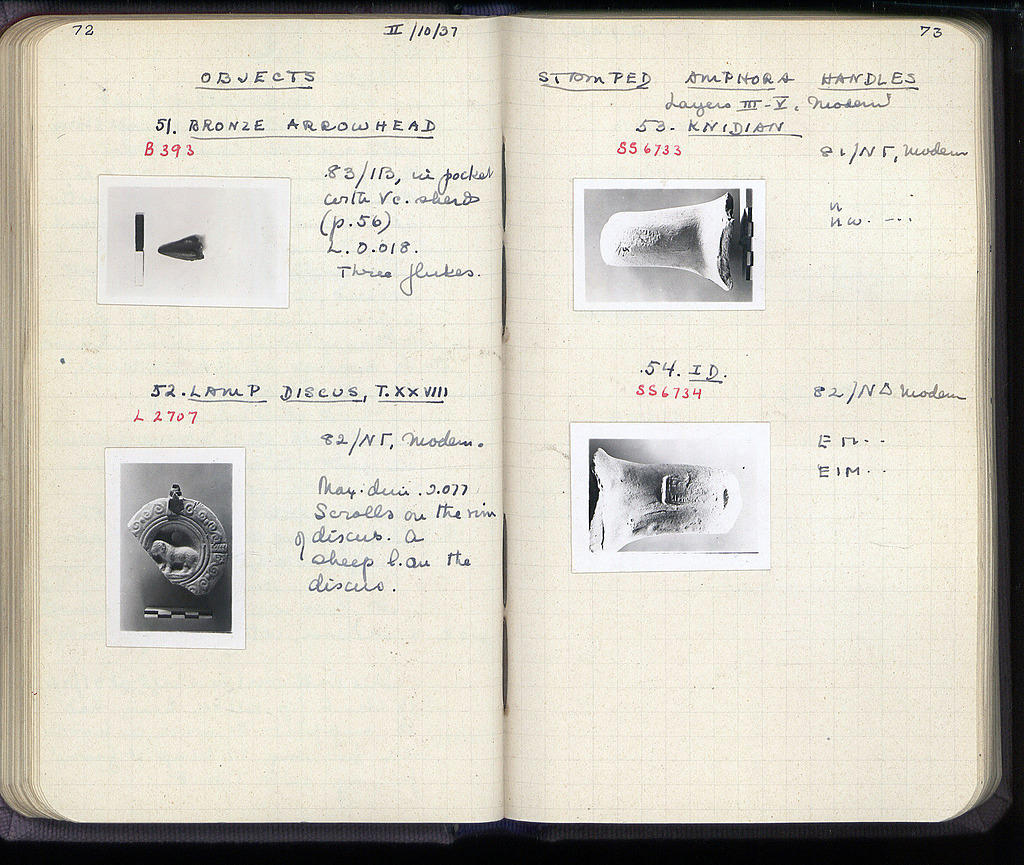 72
II/10/37
OBJECTS
51. BRONZE ARROWHEAD
B 393
83/ΙΒ, in pocket
with Vc. sherds
(p.56)
L. 0.018.
Three flukes.
52. LAMP DISCUS, T.XXVIII
L 2707
82/ΝΓ, Modern.
Max. dim. 0.077
Scrolls on the rim
of discus. A
sheep l. on the
discus.
73
STAMPED AMPHORA HANDLES
Layers III-V, Modern
53. KNIDIAN
SS 6733
81/ΝΓ, Modern
54. ID.
SS 6734
82/ΝΔ Modern